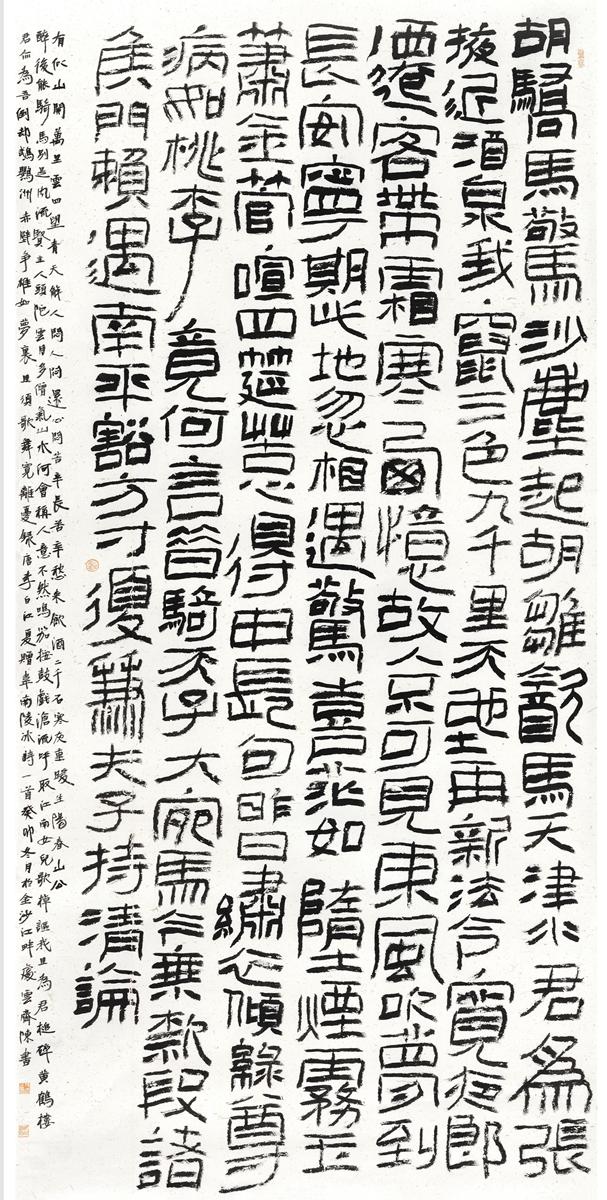 胡驕馬驚沙塵起胡雛飲馬天津水君為張
掖近酒泉我竄三色九千里天地再新法令寬夜郎
遷客帶霜寒西憶故人不可見東風吹夢到
長安寧期此地忽相遇驚喜茫如墮煙霧玉
蕭金管喧四筵苦心得申長句昨日繡衣傾綠尊
病如桃李竟何言昔騎天子大宛馬今乘款段諸
侯門賴遇南平豁方寸復兼夫子持清論
有似山開萬里雲四望青天解人悶人悶還心悶苦辛長苦辛愁來飲酒二千石寒灰重暖生陽春山公
醉後能騎馬別是風流賢主人頭陀雲月多僧氣山水何曾稱人意不然鳴笳按鼓戲滄流呼取江南女兒歌棹謳我且為君槌碎黃鶴樓
君亦為吾倒却鸚鵡洲赤壁爭雄如夢裏且須歌舞寬離憂錄唐李白江夏贈韋南陵冰詩一首癸卯冬月於金沙江畔慶雲齋陳書